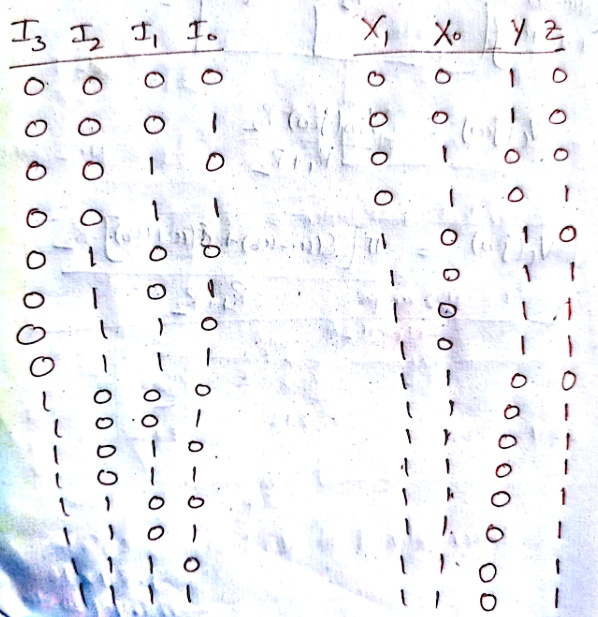 I₃ I₂ I₁ I₀ X₁ X₀ Y Z
0 0 0 0 0 0 1 0
0 0 0 1 0 0 1 0
0 0 1 0 0 1 0 0
0 0 1 1 0 1 0 1
0 1 0 0 1 0 1 0
0 1 0 1 1 0 1 1
0 1 1 0 1 0 1 1
0 1 1 1 1 0 1 1
1 0 0 0 1 1 0 0
1 0 0 1 1 1 0 1
1 0 1 0 1 1 0 1
1 0 1 1 1 1 0 1
1 1 0 0 1 1 0 1
1 1 0 1 1 1 0 1
1 1 1 0 1 1 0 1
1 1 1 1 1 1 0 1